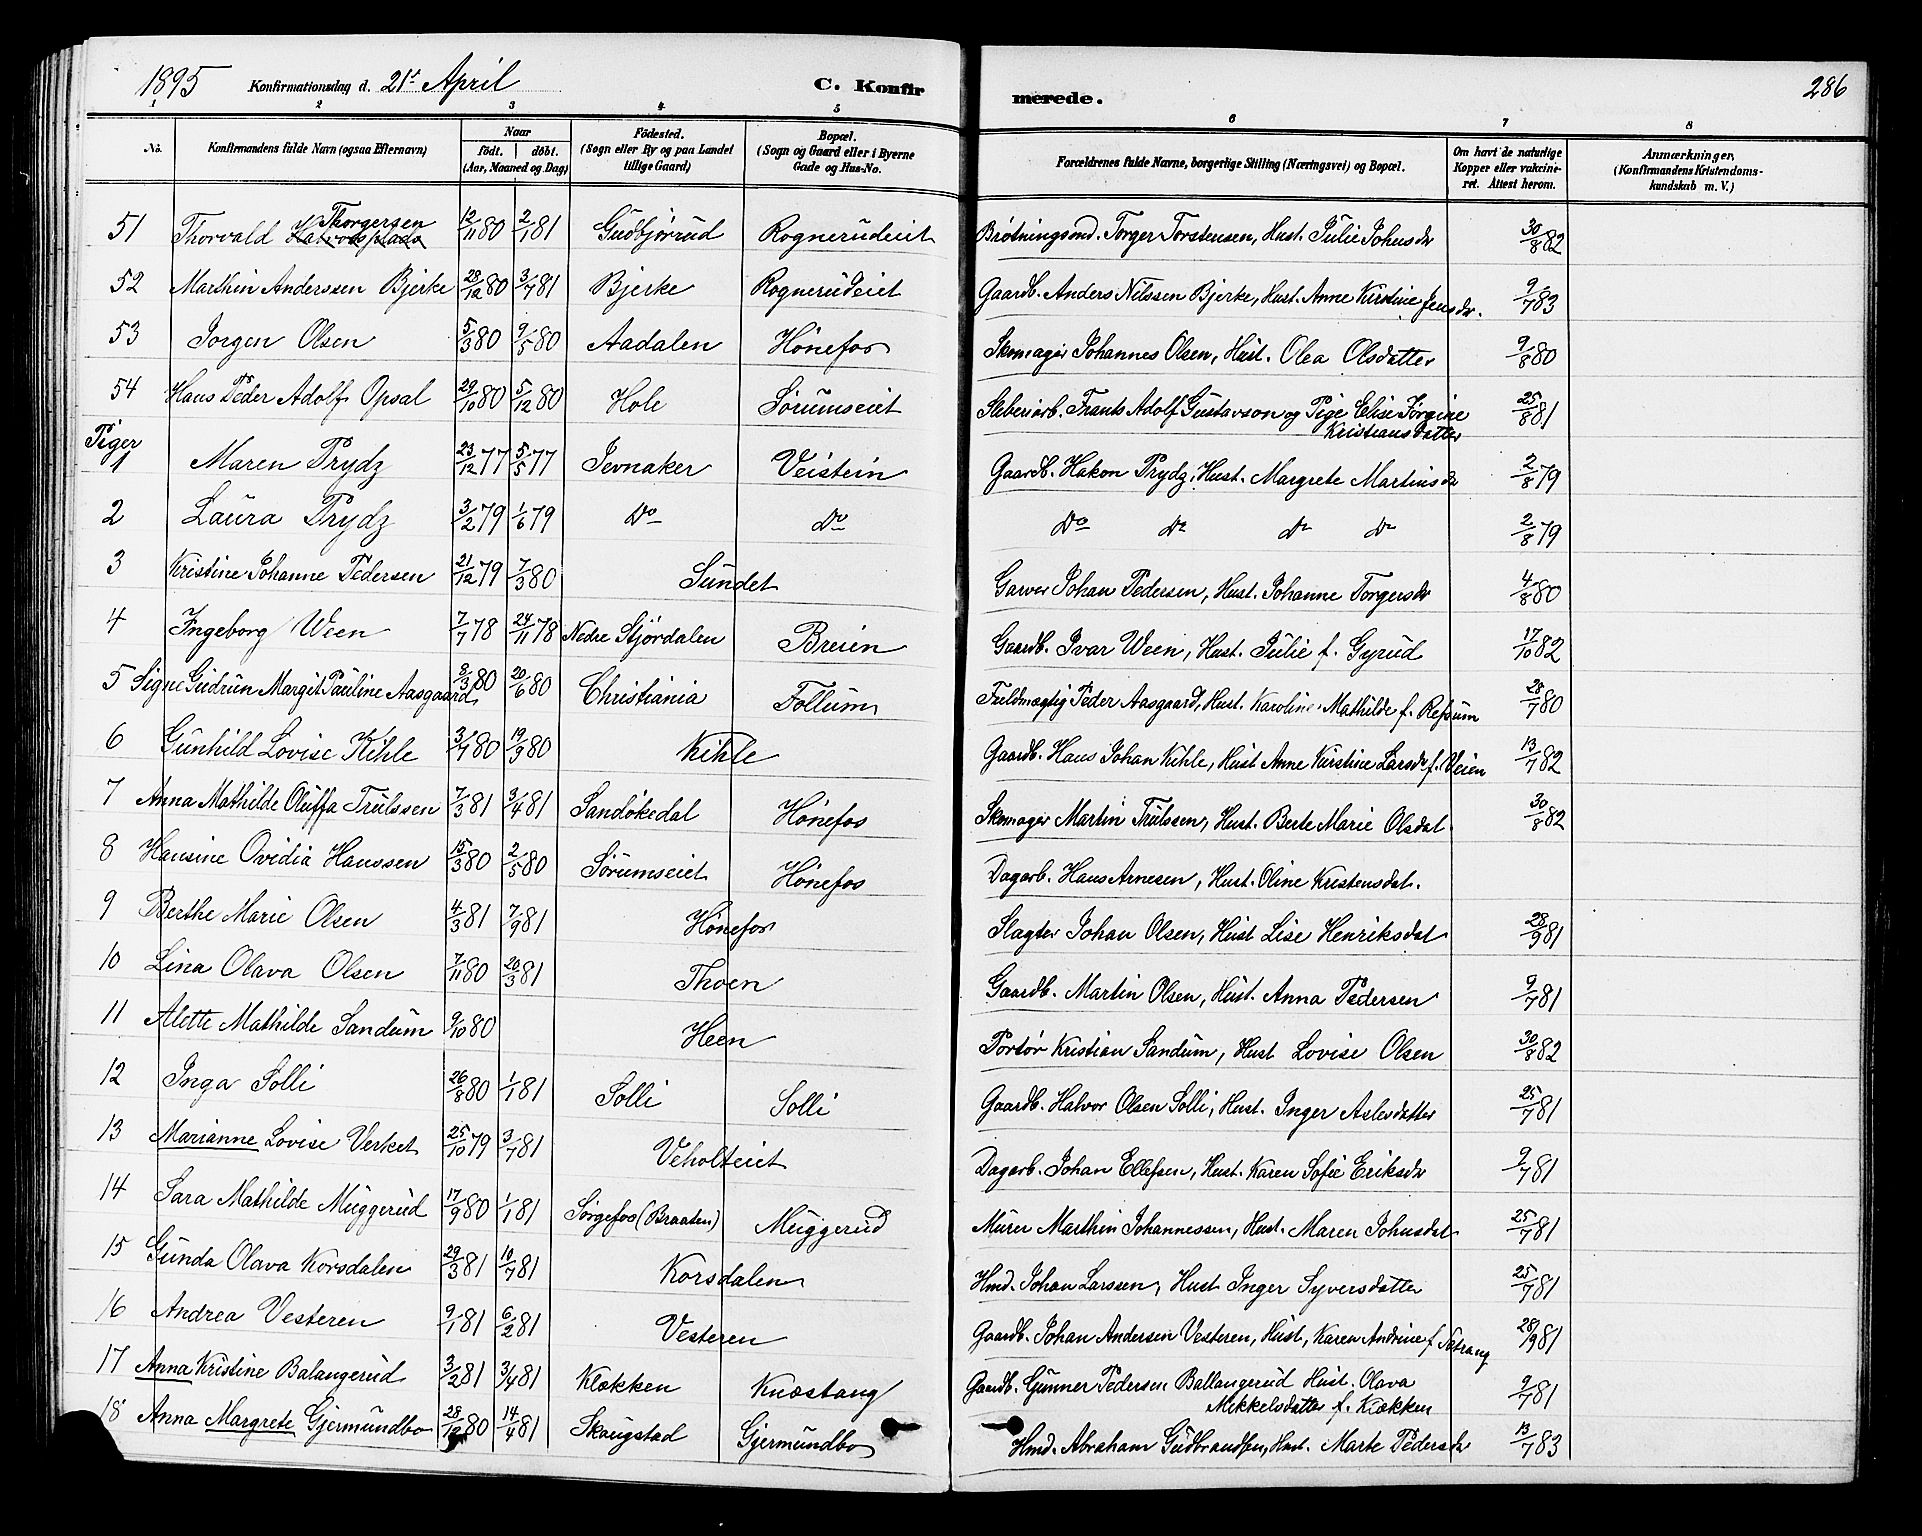 1895 Konfirmationsdag d. 21de April C. Konfirmerede. 286
1 2 3 4 5 6 7 8
No. Konfirmandens fulde Navn (ogsaa Efternavn) Naar födt. döbt. (Aar, Maaned og Dag) Födested. (Sogn eller By og paa Landet tillige Gaard) Bopæl. (Sogn og Gaard eller i Byerne Gade og Hus-No.) Forældrenes fulde Navne, borgerlige Stilling (Næringsvei) og Bopæl. Om havt de naturlige Kopper eller vakcineret. Attest herom. Anmærkninger, (Konfirmandens Kristendomskundskab m. V.)
51 Thorvald Thorgersen 12/11 80 2/1 81 Gudbjörrud Rognerudeiet Brötningsmd. Torger Torstensen, Hust. Julie Johnsdr 30/8 82
52 Marthin Anderssen Bjerke 28/12 80 3/7 81 Bjerke Rognerudeiet Gaardb. Anders Nilssen Bjerke, Hust. Anne Kirstine Jensdr. 9/7 83
53 Jørgen Olsen 5/3 80 9/5 80 Aadalen Hönefos Skomager Johannes Olsen, Hust. Olea Olsdatter 9/8 80
54 Hans Peder Adolf Opsal 29/10 80 5/12 80 Hole Sörumseiet Sleberiarb. Frants Adolf Gustavson og Pige Elise Jörgine Kristiansdatter 25/8 81
Piger
1 Maren Prydz 23/12 77 5/5 77 Jevnaker Veistein Gaardb. Hakon Prydz, Hust. Margrete Martinsdr 2/8 79
2 Laura Prydz 3/2 79 1/6 79 Do Do Do Do Do Do 2/8 79
3 Kristine Johanne Pedersen 21/12 79 7/3 80 Sundet Garver Johan Pedersen, Hust. Johanne Torgersdr 4/8 80
4 Ingeborg Ween 7/7 78 24/11 78 Nedre Stjördalen Breien Gaardb. Ivar Ween, Hust. Julie f. Gyrud 17/10 82
5 Signe Gudrun Margit Pauline Aasgaard 8/3 80 20/6 80 Christiania Follum Fuldmægtig Peder Aasgaard, Hust. Karoline Mathilde f. Refsum 28/7 80
6 Gunhild Lovise Kihle 3/7 80 19/9 80 Kihle Gaardb. Hans Johan Kihle, Hust Anne Kirstine Larsdr f. Veien 13/7 82
7 Anna Mathilde Oluffa Trulssen 7/3 81 3/4 81 Sandökedal Hönefos Skomager Martin Trulssen, Hust. Berte Marie Olsdat. 30/8 82
8 Hansine Ovidia Hanssen 15/3 80 2/5 80 Sörumseiet Hönefos Dagarb. Hans Arnesen, Hust. Oline Kristensdat.
9 Berthe Marie Olsen 4/3 81 7/9 81 Hönefos Slagter Johan Olsen, Hust Lise Henriksdat 28/9 81
10 Lina Olava Olsen 7/11 80 20/3 81 Thoen Gaardb. Martin Olsen, Hust. Anna Pedersen 9/7 81
11 Alette Mathilde Sandum 9/10 80 Heen Portör Kristian Sandum, Hust Lovise Olsen 30/8 82
12 Inga Solli 26/8 80 1/1 81 Solli Solli Gaardb. Halvor Olsen Solli, Hust. Inger Aslesdatter 25/7 81
13 Marianne Lovise Verket 25/10 79 3/7 81 Veholteiet Dagarb. Johan Ellefsen, Hust. Karen Sofie Eriksdr 9/7 81
14 Sara Mathilde Muggerud 17/9 80 1/1 81 Sörgefos (Braaten) Muggerud Murer Marthin Johannessen, Hust. Maren Johnsdat 25/7 81
15 Gunda Olava Korsdalen 29/3 81 10/7 81 Korsdalen Hmd. Johan Larssen, Hust Inger Syversdatter 25/7 81
16 Andrea Vesteren 9/1 81 6/2 81 Vesteren Gaardb. Johan Andersen Vesteren, Hust, Karen Andrine f. Setrang 28/9 81
17 Anna Kristine Balangerud 3/2 81 3/4 81 Klækken Knæstang Gaardb. Gunner Pedersen Ballangerud Hust. Olava Mikkelsdatter f. Klækken 9/7 81
18 Anna Margrete Gjermundbo 28/12 80 14/4 81 Skougstad Gjermundbo Hmd. Abraham Gudbrandsen, Hust. Marte Pedersdr 13/7 83